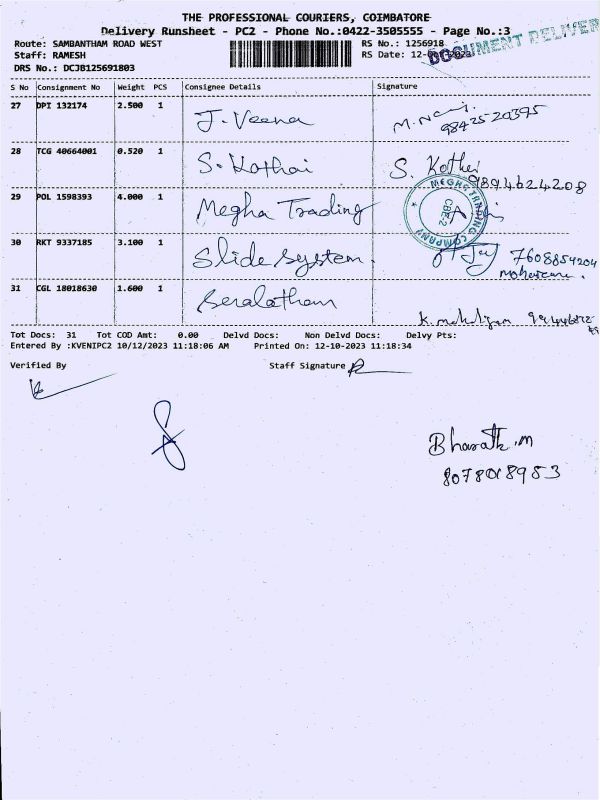 THE PROFESSIONAL COURIERS, COIMBATORE
Delivery Runsheet - PC2 - Phone No.:0422-3505555 - Page No.:3
Route: SAMBANTHAM ROAD WEST
RS No.: 1256918
Staff: RAMESH
RS Date: 12-
DOCUMENT DELIVER
DRS No.: DCJB125691803
S No Consignment No Weight PCS Consignee Details Signature
27 DPI 132174 2.500 1 J. Veena
28 TCG 40664001 0.520 1 S. Kothai S. Kothai
9894624208
29 POL 1598393 4.000 1 Megha Trading
MEGHA TRADING COMPANY CBE-2
30 RKT 9337185 3.100 1 Slide System. 7608854204
31 CGL 18018630 1.600 1
Tot Docs: 31 Tot COD Amt: 0.00 Delvd Docs: Non Delvd Docs: Delvy Pts:
Entered By :KVENIPC2 10/12/2023 11:18:06 AM Printed On: 12-10-2023 11:18:34
Verified By Staff Signature
Bharath.m
8078018953